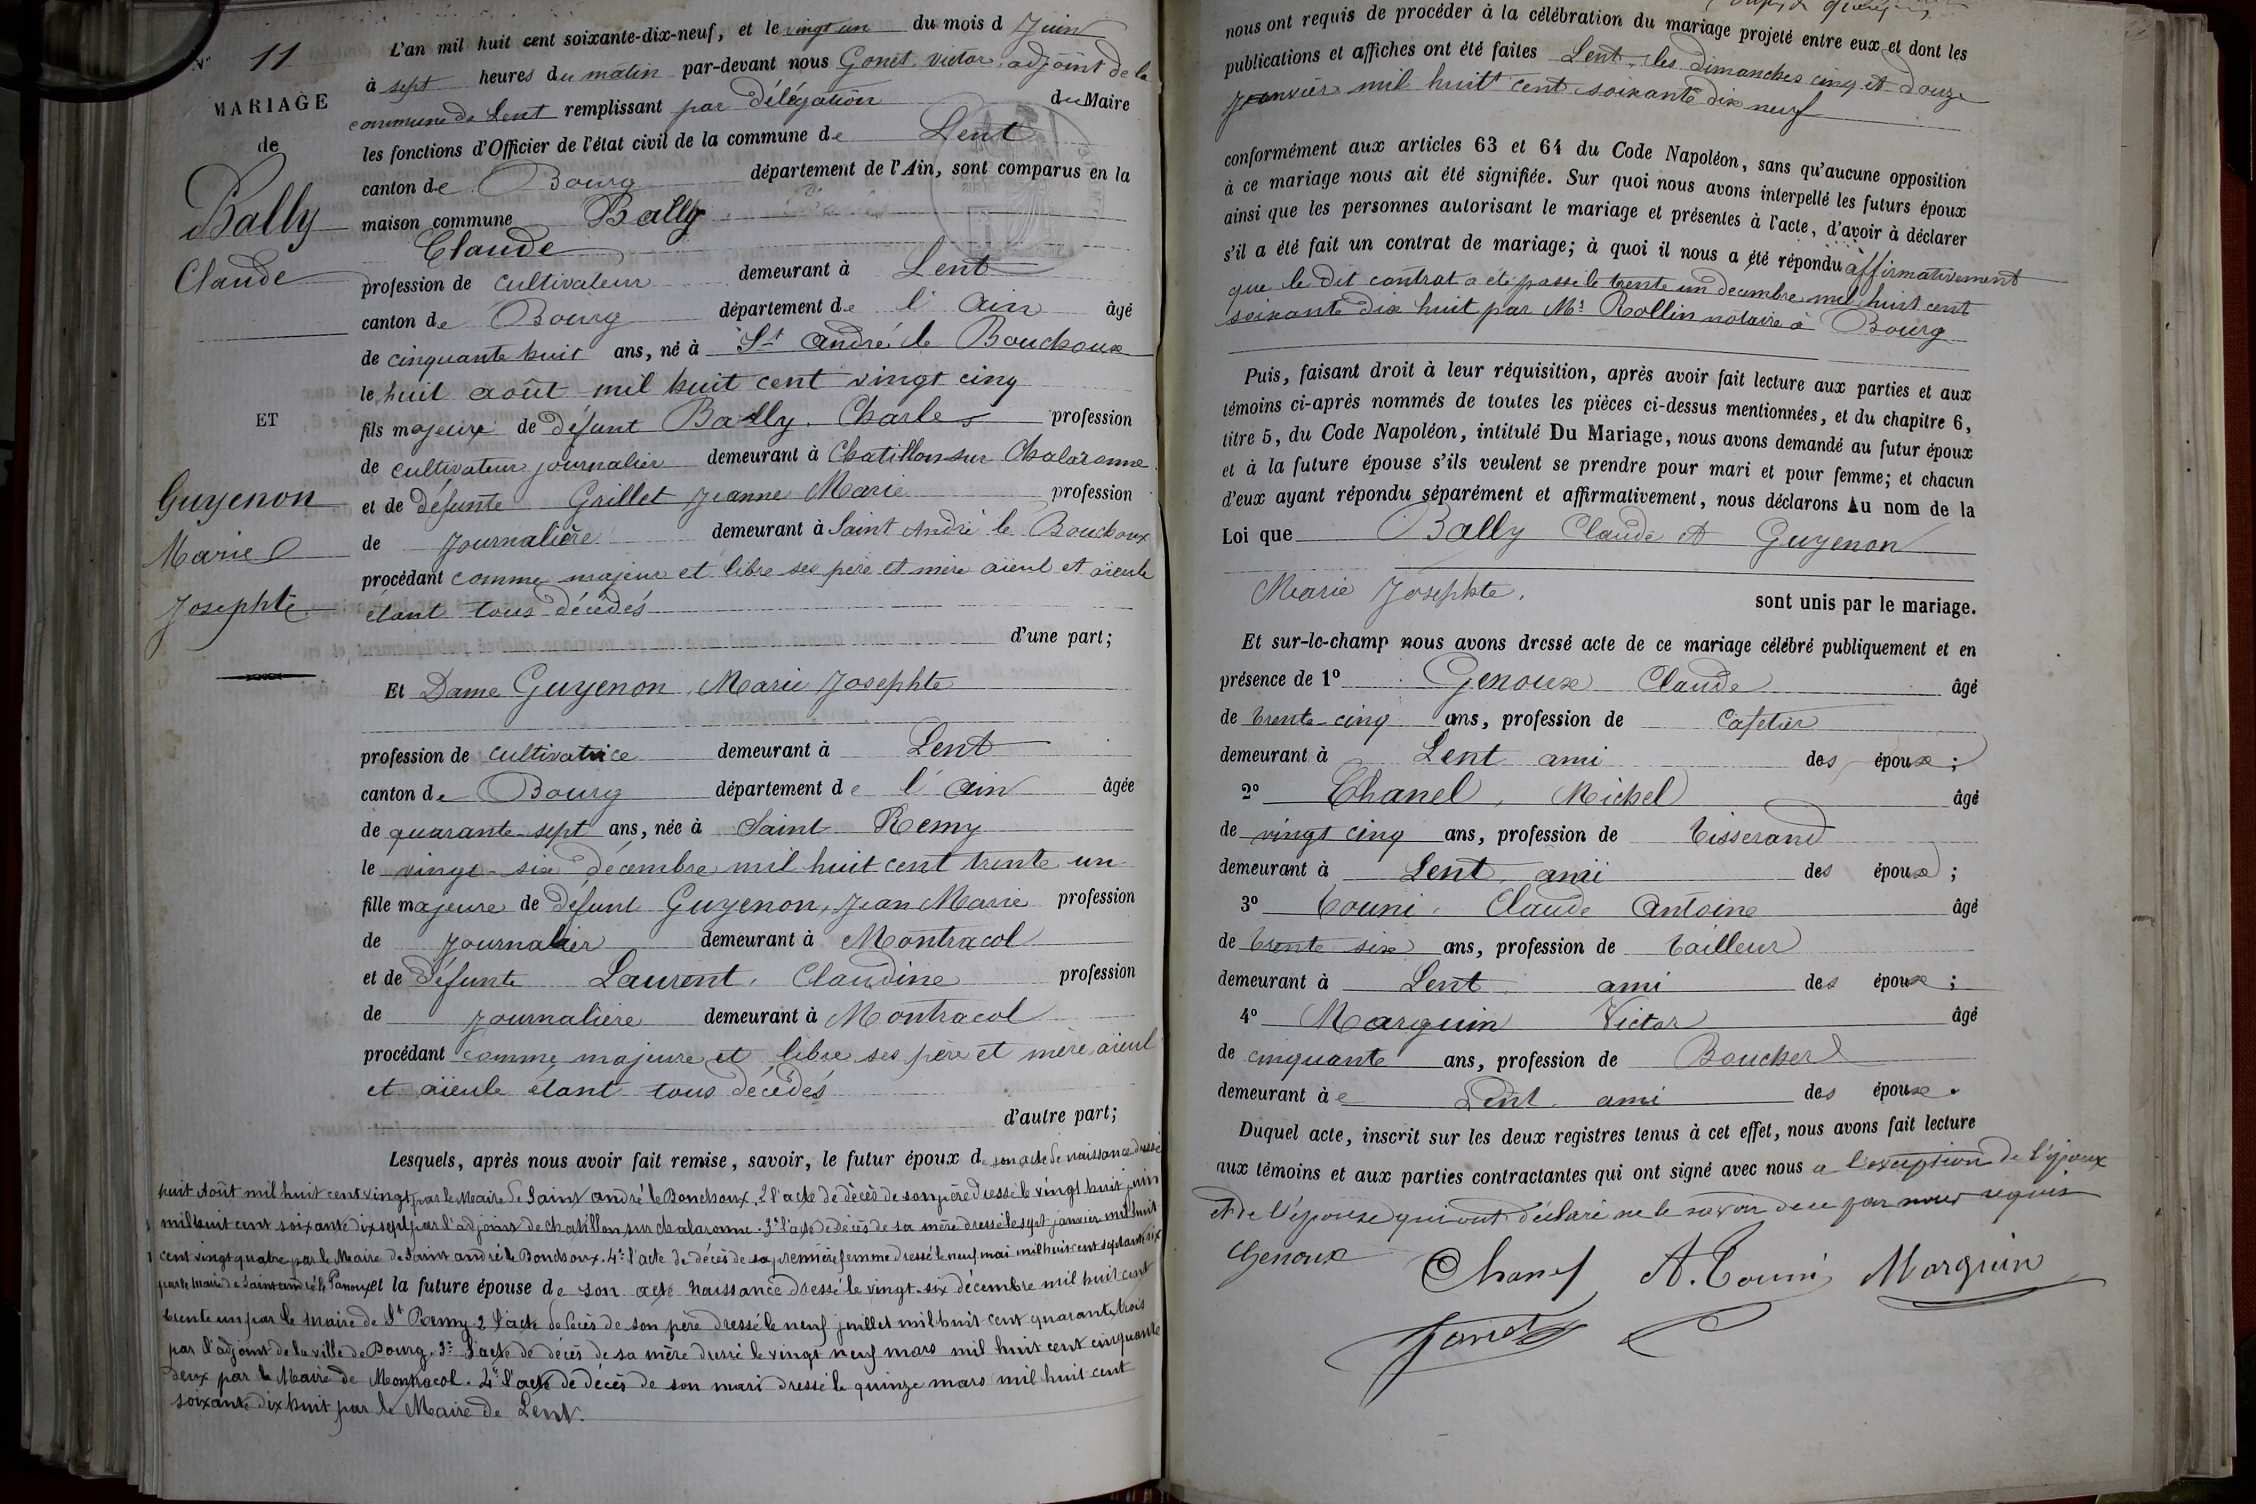 N° 11
MARIAGE
de
Bally
Claude
ET
Guyenon
Marie
Josephte
L'an mil huit cent soixante-dix-neuf, et le vingt un du mois d Juin
à sept heures du matin par-devant nous Gonet Victor, adjoint de la
commune de Lent remplissant par délégation du Maire
les fonctions d'Officier de l'état civil de la commune de Lent
canton de Bourg département de l'Ain, sont comparus en la
maison commune Bally
Claude
profession de cultivateur demeurant à Lent
canton de Bourg département de l'ain âgé
de cinquante huit ans, né à St André le Bouchoux
le huit août mil huit cent vingt cinq
fils majeur de défunt Bally Charles profession
de cultivateur journalier demeurant à Chatillon sur Chalaronne
et de défunte Grillet Jeanne Marie profession
de journalière demeurant à Saint André le Bouchoux
procédant comme majeur et libre ses père et mère aïeul et aïeule
étant tous décédés
d'une part;
Et Dame Guyenon, Marie Josephte
profession de cultivatrice demeurant à Lent
canton de Bourg département de l'ain âgée
de quarante-sept ans, née à Saint Remy
le vingt-six décembre mil huit cent trente un
fille majeure de défunt Guyenon, Jean Marie profession
de journalier demeurant à Montracol
et de défunte Laurent, Claudine profession
de journalière demeurant à Montracol
procédant comme majeure et libre ses père et mère aïeul
et aïeule étant tous décédés
d'autre part;
Lesquels, après nous avoir fait remise, savoir, le futur époux de son acte de naissance dressé
huit Août mil huit cent vingt par le Maire de Saint andré le Bouchoux. 2 l'acte de décès de son père dressé le vingt huit juin
mil huit cent soixante dix sept par l'adjoint de chatillon sur chalaronne. 3° l'acte de décès de sa mère dressé le sept janvier mil huit
cent vingt quatre par le Maire de Saint andré le Bouchoux. 4° l'acte de décès de sa première femme dressé le neuf mai mil huit cent septante six
par le maire de Saint andré le Panoux et la future épouse de son acte naissance dressé le vingt-six décembre mil huit cent
trente un par le Maire de St Remy 2 l'acte de décès de son père dressé le neuf juillet mil huit cent quarante trois
par l'adjoint de la ville de Bourg. 3° l'acte de décès de sa mère dressé le vingt neuf mars mil huit cent cinquante
deux par le Maire de Montracol. 4° l'acte de décès de son mari dressé le quinze mars mil huit cent
soixante dix huit par le Maire de Lent.
nous ont requis de procéder à la célébration du mariage projeté entre eux et dont les
publications et affiches ont été faites Lent, les dimanches cinq et douze
Janvier mil huit cent soixante dix neuf
conformément aux articles 63 et 64 du Code Napoléon, sans qu'aucune opposition
à ce mariage nous ait été signifiée. Sur quoi nous avons interpellé les futurs époux
ainsi que les personnes autorisant le mariage et présentes à l'acte, d'avoir à déclarer
s'il a été fait un contrat de mariage; à quoi il nous a été répondu affirmativement
que le dit contrat a été passé le trente un decembre mil huit cent
soixante dix huit par Me Rollin notaire à Bourg
Puis, faisant droit à leur réquisition, après avoir fait lecture aux parties et aux
témoins ci-après nommés de toutes les pièces ci-dessus mentionnées, et du chapitre 6,
titre 5, du Code Napoléon, intitulé Du Mariage, nous avons demandé au futur époux
et à la future épouse s'ils veulent se prendre pour mari et pour femme; et chacun
d'eux ayant répondu séparément et affirmativement, nous déclarons Au nom de la
Loi que Bally Claude et Guyenon
Marie Josephte. sont unis par le mariage.
Et sur-le-champ nous avons dressé acte de ce mariage célébré publiquement et en
présence de 1° Genoux Claude âgé
de trente-cinq ans, profession de Cafetier
demeurant à Lent ami des époux;
2° Chanel, Michel âgé
de vingt cinq ans, profession de tisserand
demeurant à Lent, ami des époux;
3° Touni, Claude Antoine âgé
de trente six ans, profession de tailleur
demeurant à Lent ami des époux;
4° Marguin Victor âgé
de cinquante ans, profession de Boucher
demeurant à Lent ami des époux.
Duquel acte, inscrit sur les deux registres tenus à cet effet, nous avons fait lecture
aux témoins et aux parties contractantes qui ont signé avec nous a l'exception de l'époux
et de l'épouse qui ont déclaré ne le savoir de ce par nous requis
Genoux Chanel A. Touni Marguin
Gonet